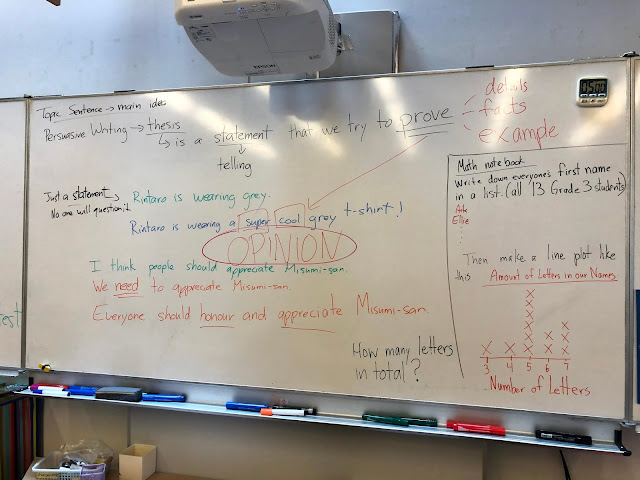 EPSON
Topic Sentence → main idea
Persuasive Writing → thesis
↳ is a statement that we try to prove
telling
details
facts
example
Just a statement →
No one will question it
Rintaro is wearing grey.
Rintaro is wearing a super cool grey t-shirt!
OPINION
I think people should appreciate Misumi-san.
We need to appreciate Misumi-san.
Everyone should honour and appreciate Misumi-san.
How many letters
in total?
Math notebook
Write down everyone's first name
in a list. (all 13 Grade 3 students)
Ellie
Then make a line plot like
this
Amount of Letters in our Names
3 4 5 6 7
Number of Letters